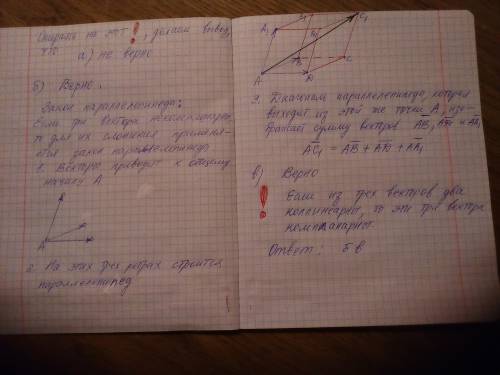 Опираясь на это!, делаем вывод,
что
а) не верно
б) Верно.
Закон параллелепипеда:
Если три вектора некомпланарны,
то для их сложения применя-
ется закон параллелепипеда
1. Векторы приводят к общему
началу А
А
2. На этих трех ребрах строится
параллелепипед
A₁
C₁
B
A
D
C
3. Диагональ параллелепипеда, которая
выходит из этой же точки А, изо-
бражает сумму векторов AB, AD и AA₁
AC₁ = AB + AD + AA₁
в) Верно
! Если из трех векторов два
коллинеарны, то эти три вектора
компланарны.
Ответ: б в